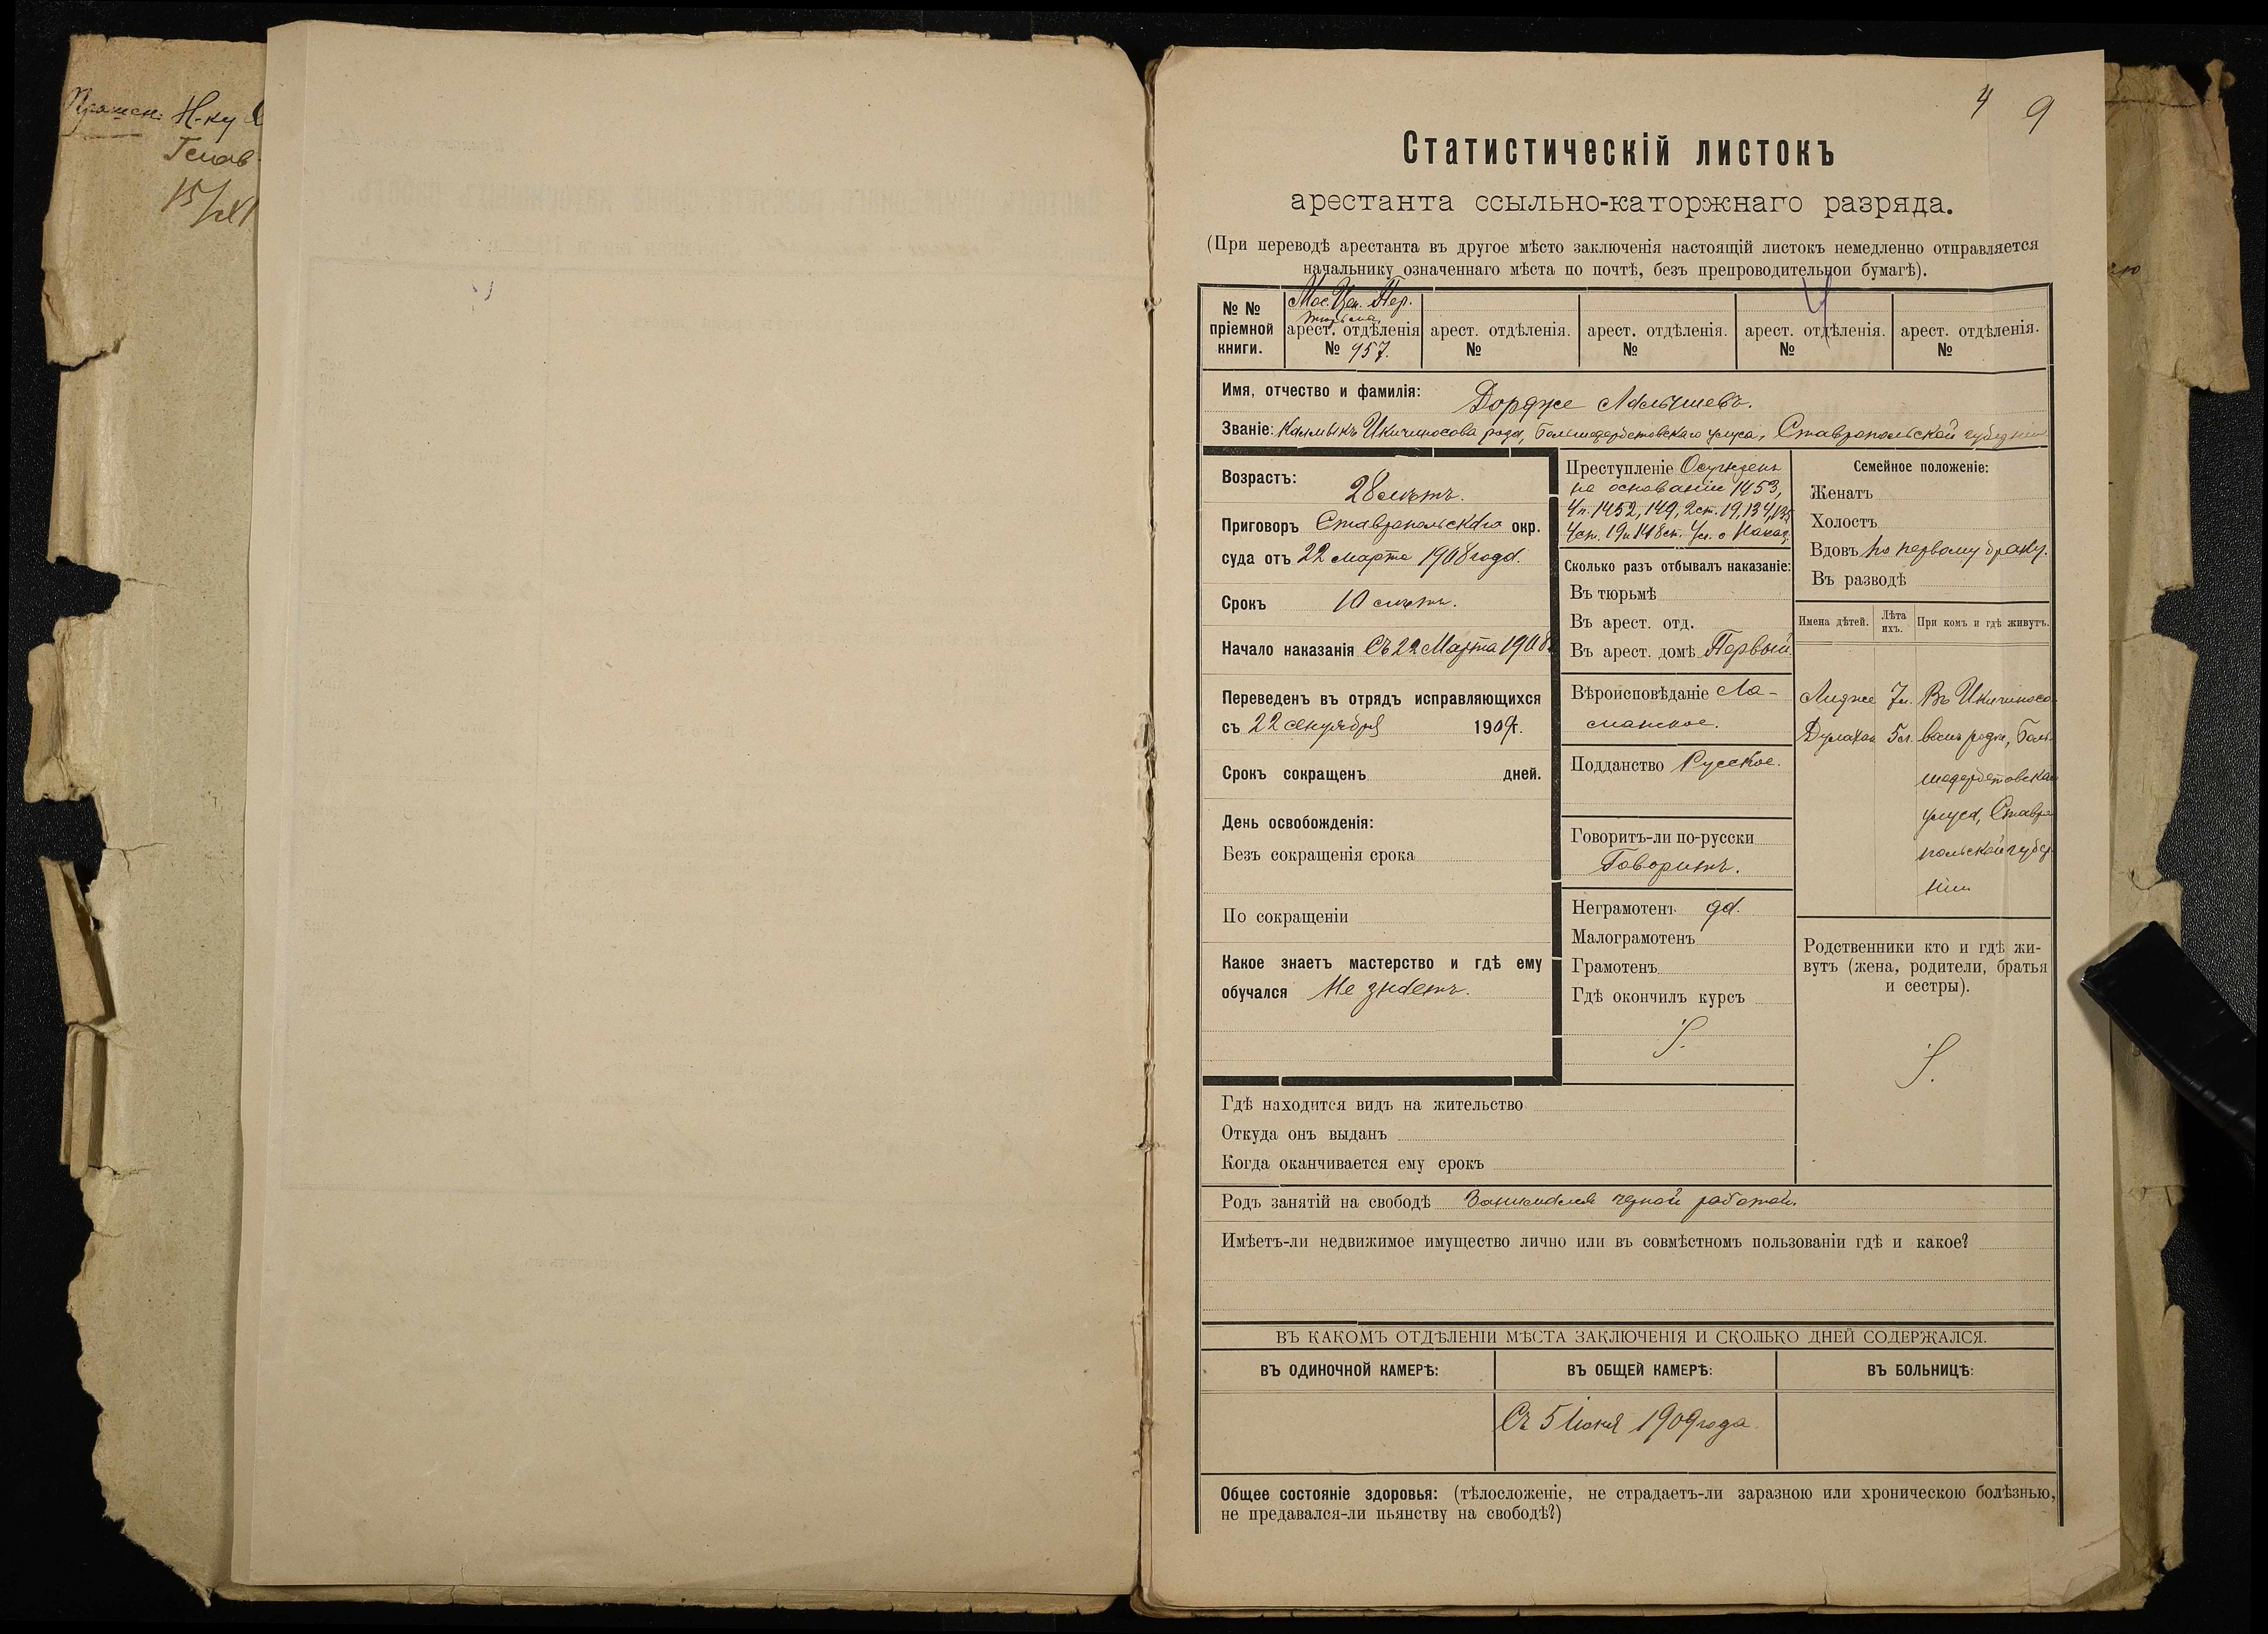 Н-ку
15/XI
4 9
Статистическій листокъ
арестанта ссыльно-каторжнаго разряда.
(При переводѣ арестанта въ другое мѣсто заключенія настоящій листокъ немедленно отправляется
начальнику означеннаго мѣста по почтѣ, безъ препроводительной бумагѣ).
№ № пріемной книги.
Мос. Цен. Пер. тюрьма
арест. отдѣленія № 957.
арест. отдѣленія. №
арест. отдѣленія. №
арест. отдѣленія. №
арест. отдѣленія. №
Имя, отчество и фамилія: Дордже
Званіе: Калмыкъ Икичиносова рода, Большедербетовскаго улуса, Ставропольской губерніи
Возрастъ:
28 лѣтъ.
Приговоръ Ставропольскаго окр.
суда отъ 22 марта 1908 года.
Срокъ 10 лѣтъ.
Начало наказанія Съ 22 Марта 1908
Переведенъ въ отрядъ исправляющихся
съ 22 сентября 1909г.
Срокъ сокращенъ дней.
День освобожденія:
Безъ сокращенія срока
По сокращеніи
Какое знаетъ мастерство и гдѣ ему
обучался Не знаетъ.
Преступленіе Осужденъ
на основаніи 1453,
4п. 1452, 149, 2 ст. 19, 134, 135
4 ст. 19 и 148 ст. Ул. о Наказ.
Сколько разъ отбывалъ наказаніе:
Въ тюрьмѣ
Въ арест. отд.
Въ арест. домѣ Первый
Вѣроисповѣданіе Ла-
майское.
Подданство Русское.
Говоритъ-ли по-русски
Говоритъ.
Неграмотенъ да.
Малограмотенъ
Грамотенъ
Гдѣ окончилъ курсъ
Семейное положеніе:
Женатъ
Холостъ
Вдовъ по первому браку.
Въ разводѣ
Имена дѣтей. Лѣта ихъ. При комъ и гдѣ живутъ.
Лидже 7л. Въ Икичиносо-
Дулахан 5л. вомъ родѣ, Боль-
шедербетовскаго
улуса, Ставро-
польской губер-
ніи
Родственники кто и гдѣ жи-
вутъ (жена, родители, братья
и сестры).
Гдѣ находится видъ на жительство
Откуда онъ выданъ
Когда оканчивается ему срокъ
Родъ занятій на свободѣ Занимался черной работой.
Имѣетъ-ли недвижимое имущество лично или въ совмѣстномъ пользованіи гдѣ и какое?
ВЪ КАКОМЪ ОТДѢЛЕНІИ МѢСТА ЗАКЛЮЧЕНІЯ И СКОЛЬКО ДНЕЙ СОДЕРЖАЛСЯ.
ВЪ ОДИНОЧНОЙ КАМЕРѢ: ВЪ ОБЩЕЙ КАМЕРѢ: ВЪ БОЛЬНИЦѢ:
Съ 5 Іюня 1909 года
Общее состояніе здоровья: (тѣлосложеніе, не страдаетъ-ли заразною или хроническою болѣзнью,
не предавался-ли пьянству на свободѣ?)